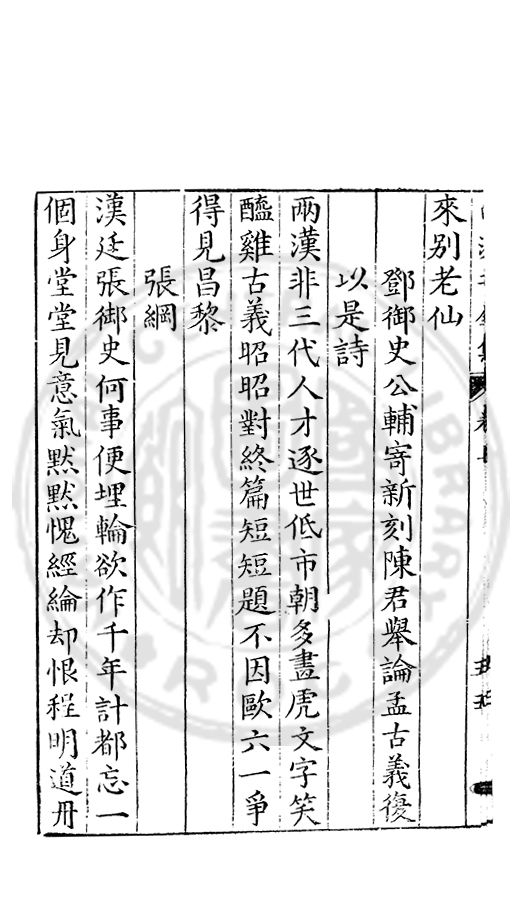 來别老仙
鄧御史公輔寄新刻陳君舉論孟古義復
以是詩
兩漢非三代人才逐世低市朝多畫虎文字笑
醯雞古義昭昭對終篇短短題不因歐六一爭
得見昌黎
張綱
漢廷張御史何事便埋輪欲作千年計都忘一
個身堂堂見意氣黙黙愧經綸却恨程明道冊